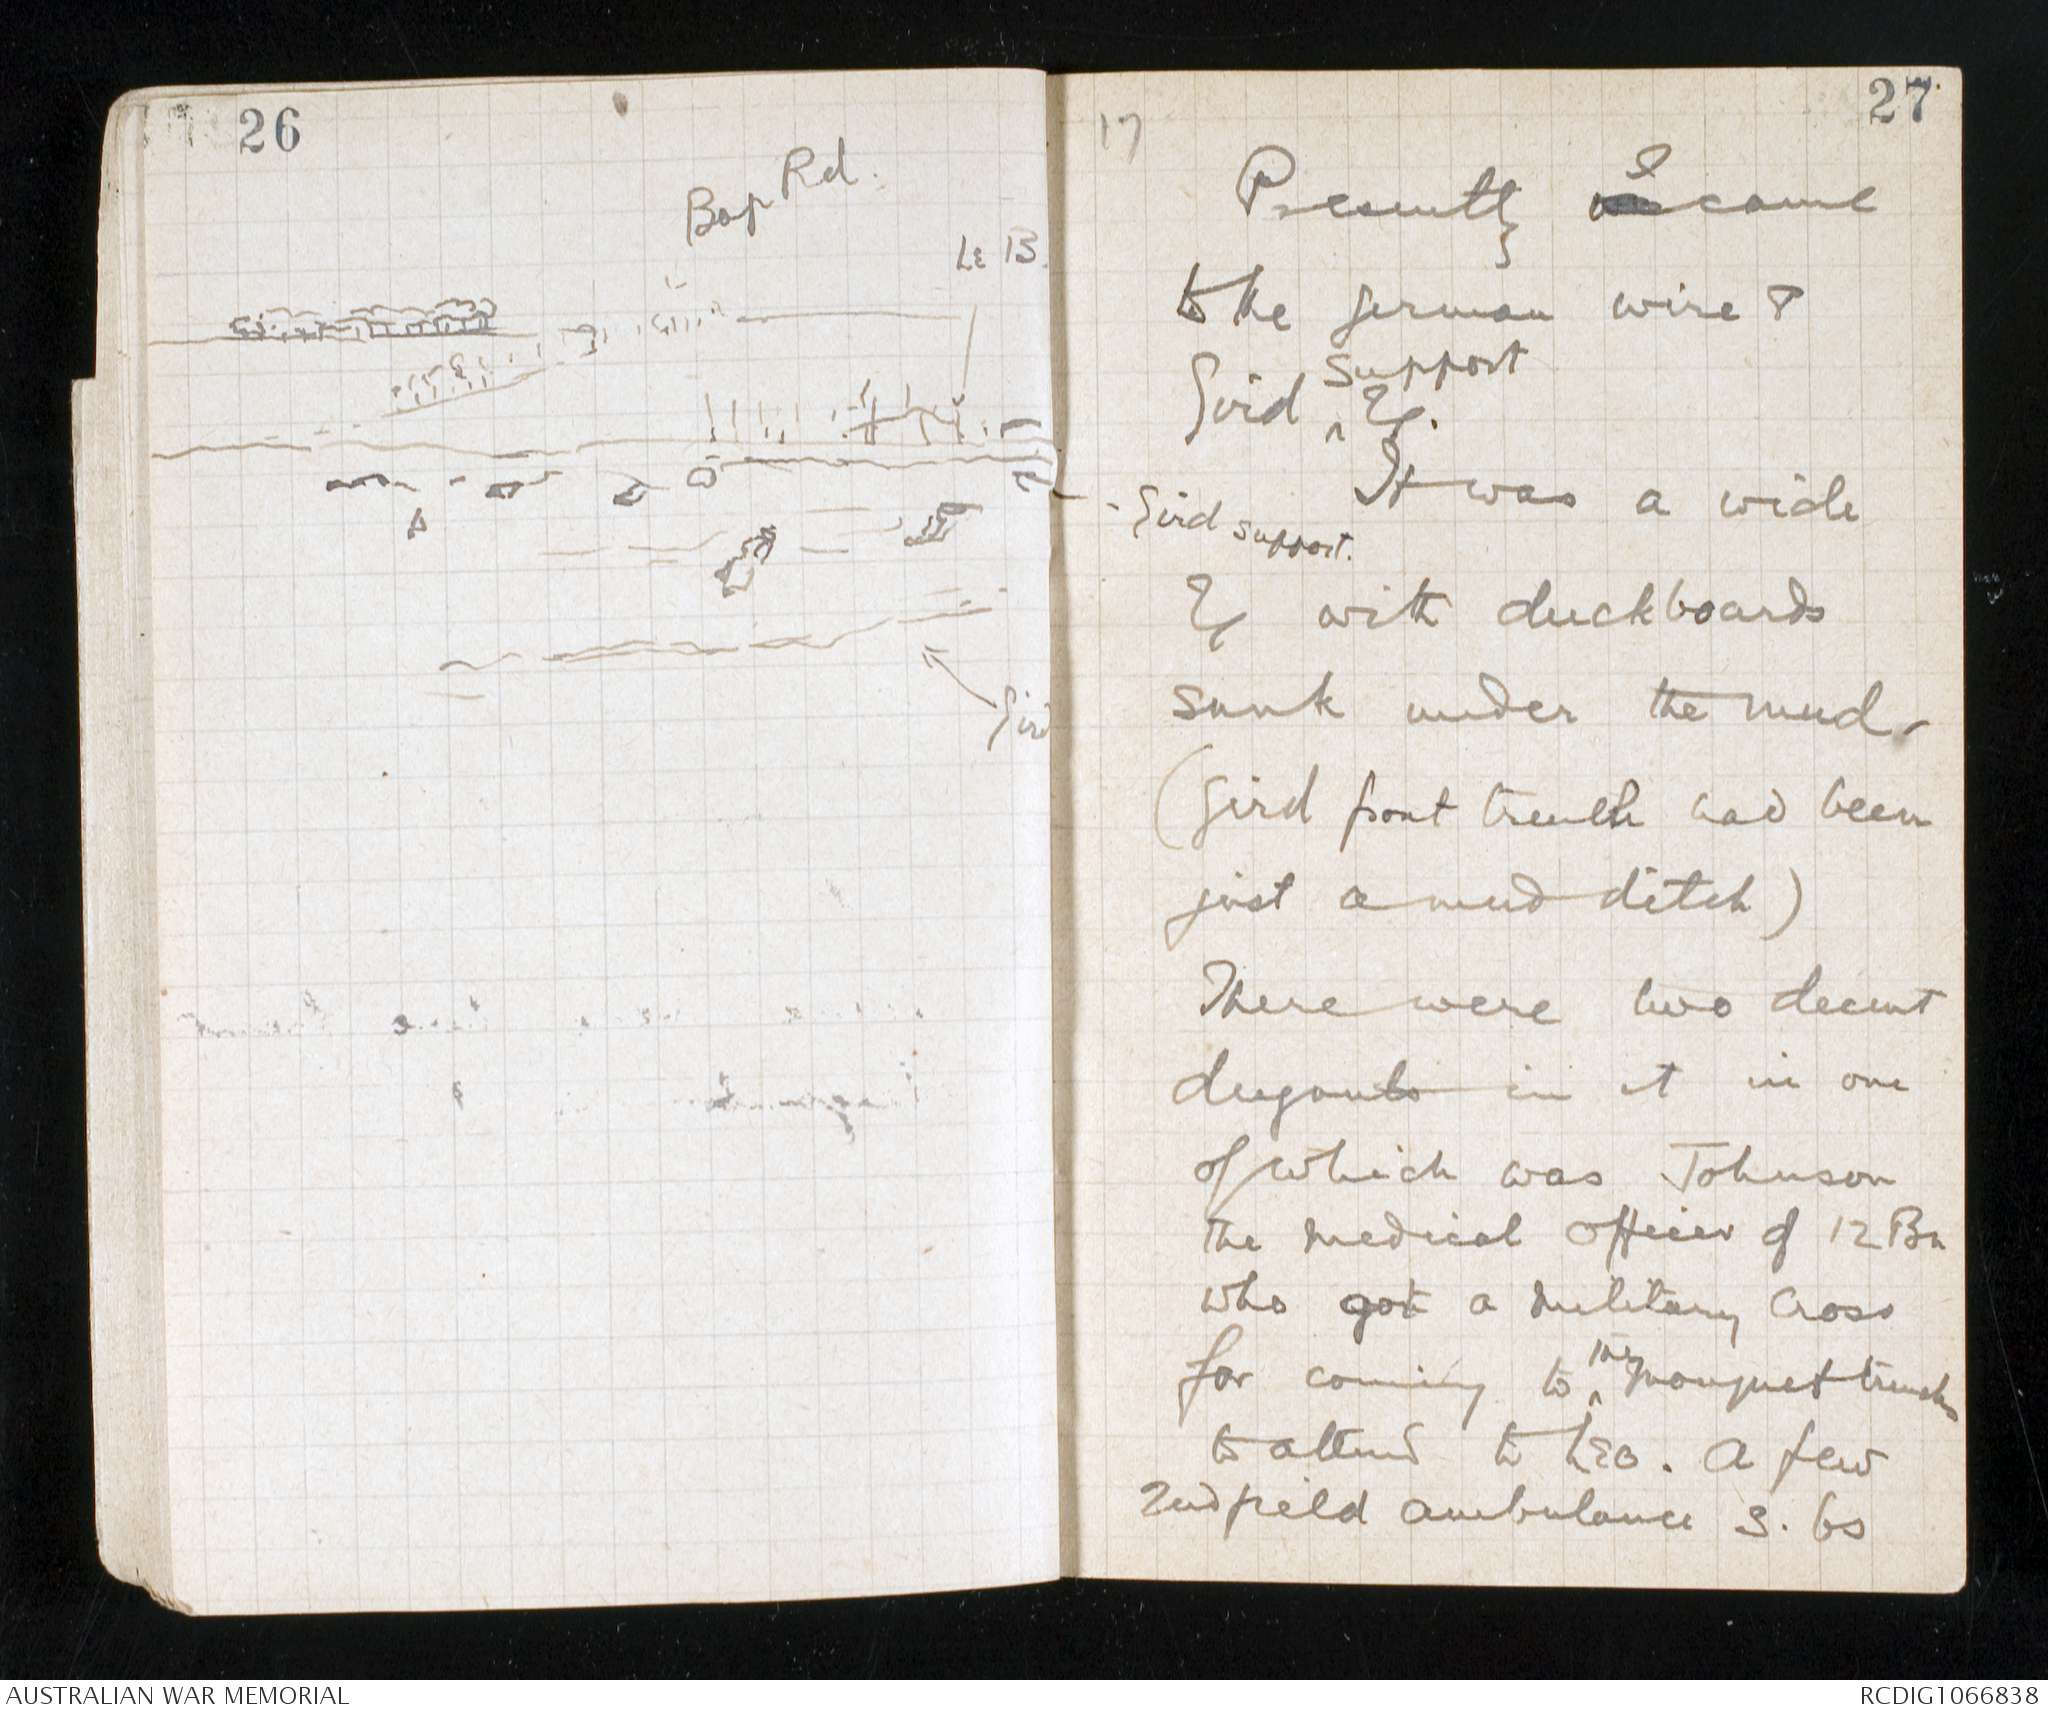 26
Bap Rd.
Le B.
Gird
27
17
Presently I came
to the German wire &
Gird support Tr.
It was a wide
- Gird support.
Tr with duckboards
sunk under the mud -
(Gird front trench had been
just a mud ditch)
There were two decent
dugouts in it in one
of which was Johnson
the medical officer of 12 Bn
who got a military cross
for coming to the Mouquet trenches
to attend to Leo. A few
2nd field ambulance S. bs
AUSTRALIAN WAR MEMORIAL
RCDIG1066838